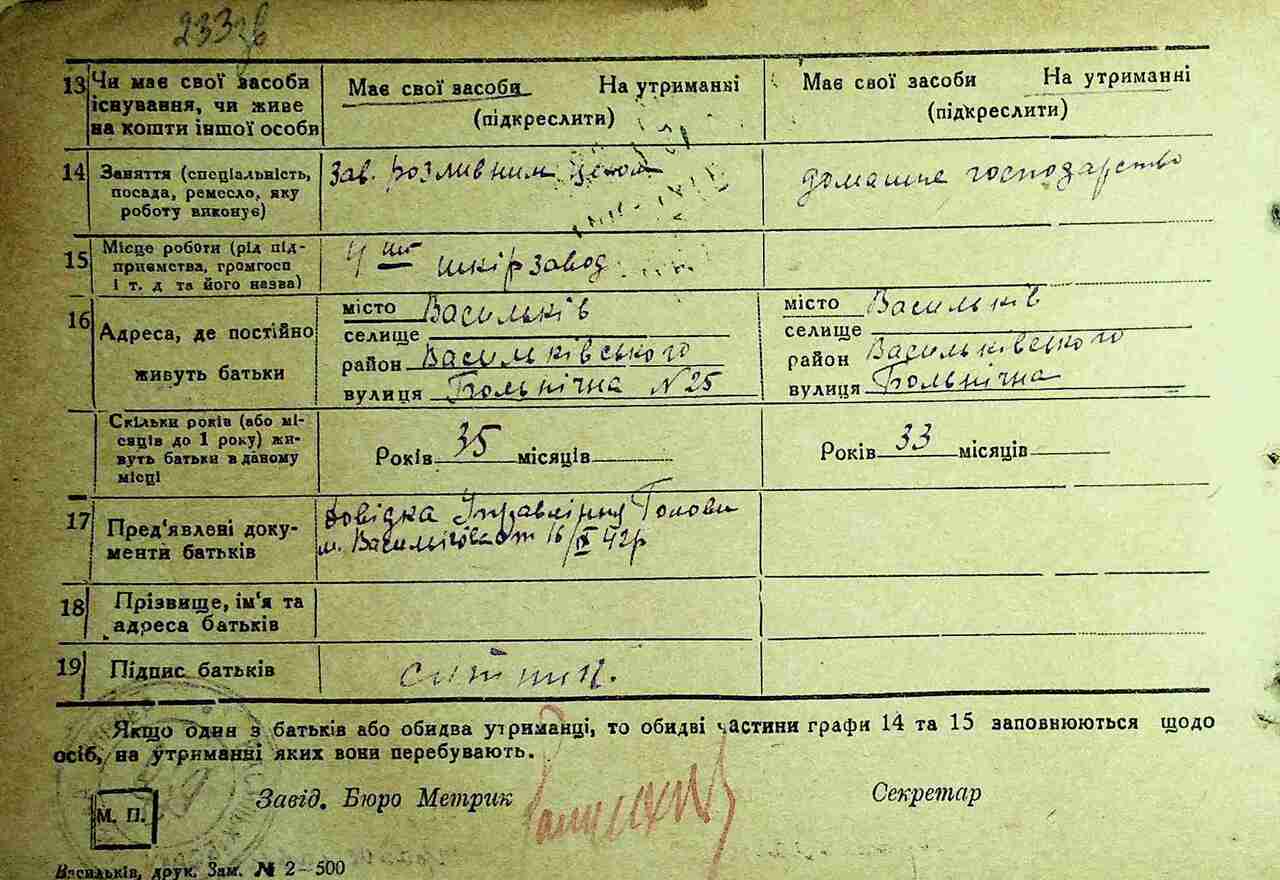 233зв
13 Чи має свої засоби існування, чи живе на кошти іншої особи
Має свої засоби На утриманні
(підкреслити)
Має свої засоби На утриманні
(підкреслити)
14 Заняття (спеціальність, посада, ремесло, яку роботу виконує)
Зав. розливним цехом
домашнє господарство
15 Місце роботи (рід підприємства, громгосп і т. д та його назва)
шкірзавод
16 Адреса, де постійно живуть батьки
місто Васильків
селище
район Васильківського
вулиця Больнічна N 25
місто Васильків
селище
район Васильківського
вулиця Больнічна
Скільки років (або місяців до 1 року) живуть батьки в даному місці
Років 35 місяців
Років 33 місяців
17 Пред'явлені документи батьків
довідка Управління Голови
м. Василькова от 16/IX 42р
18 Прізвище, ім'я та адреса батьків
19 Підпис батьків
Якщо один з батьків або обидва утриманці, то обидві частини графи 14 та 15 заповнюються щодо
осіб, на утриманні яких вони перебувають.
М. П.
Завід. Бюро Метрик
Секретар
Васильків, друк. Зам. № 2—500